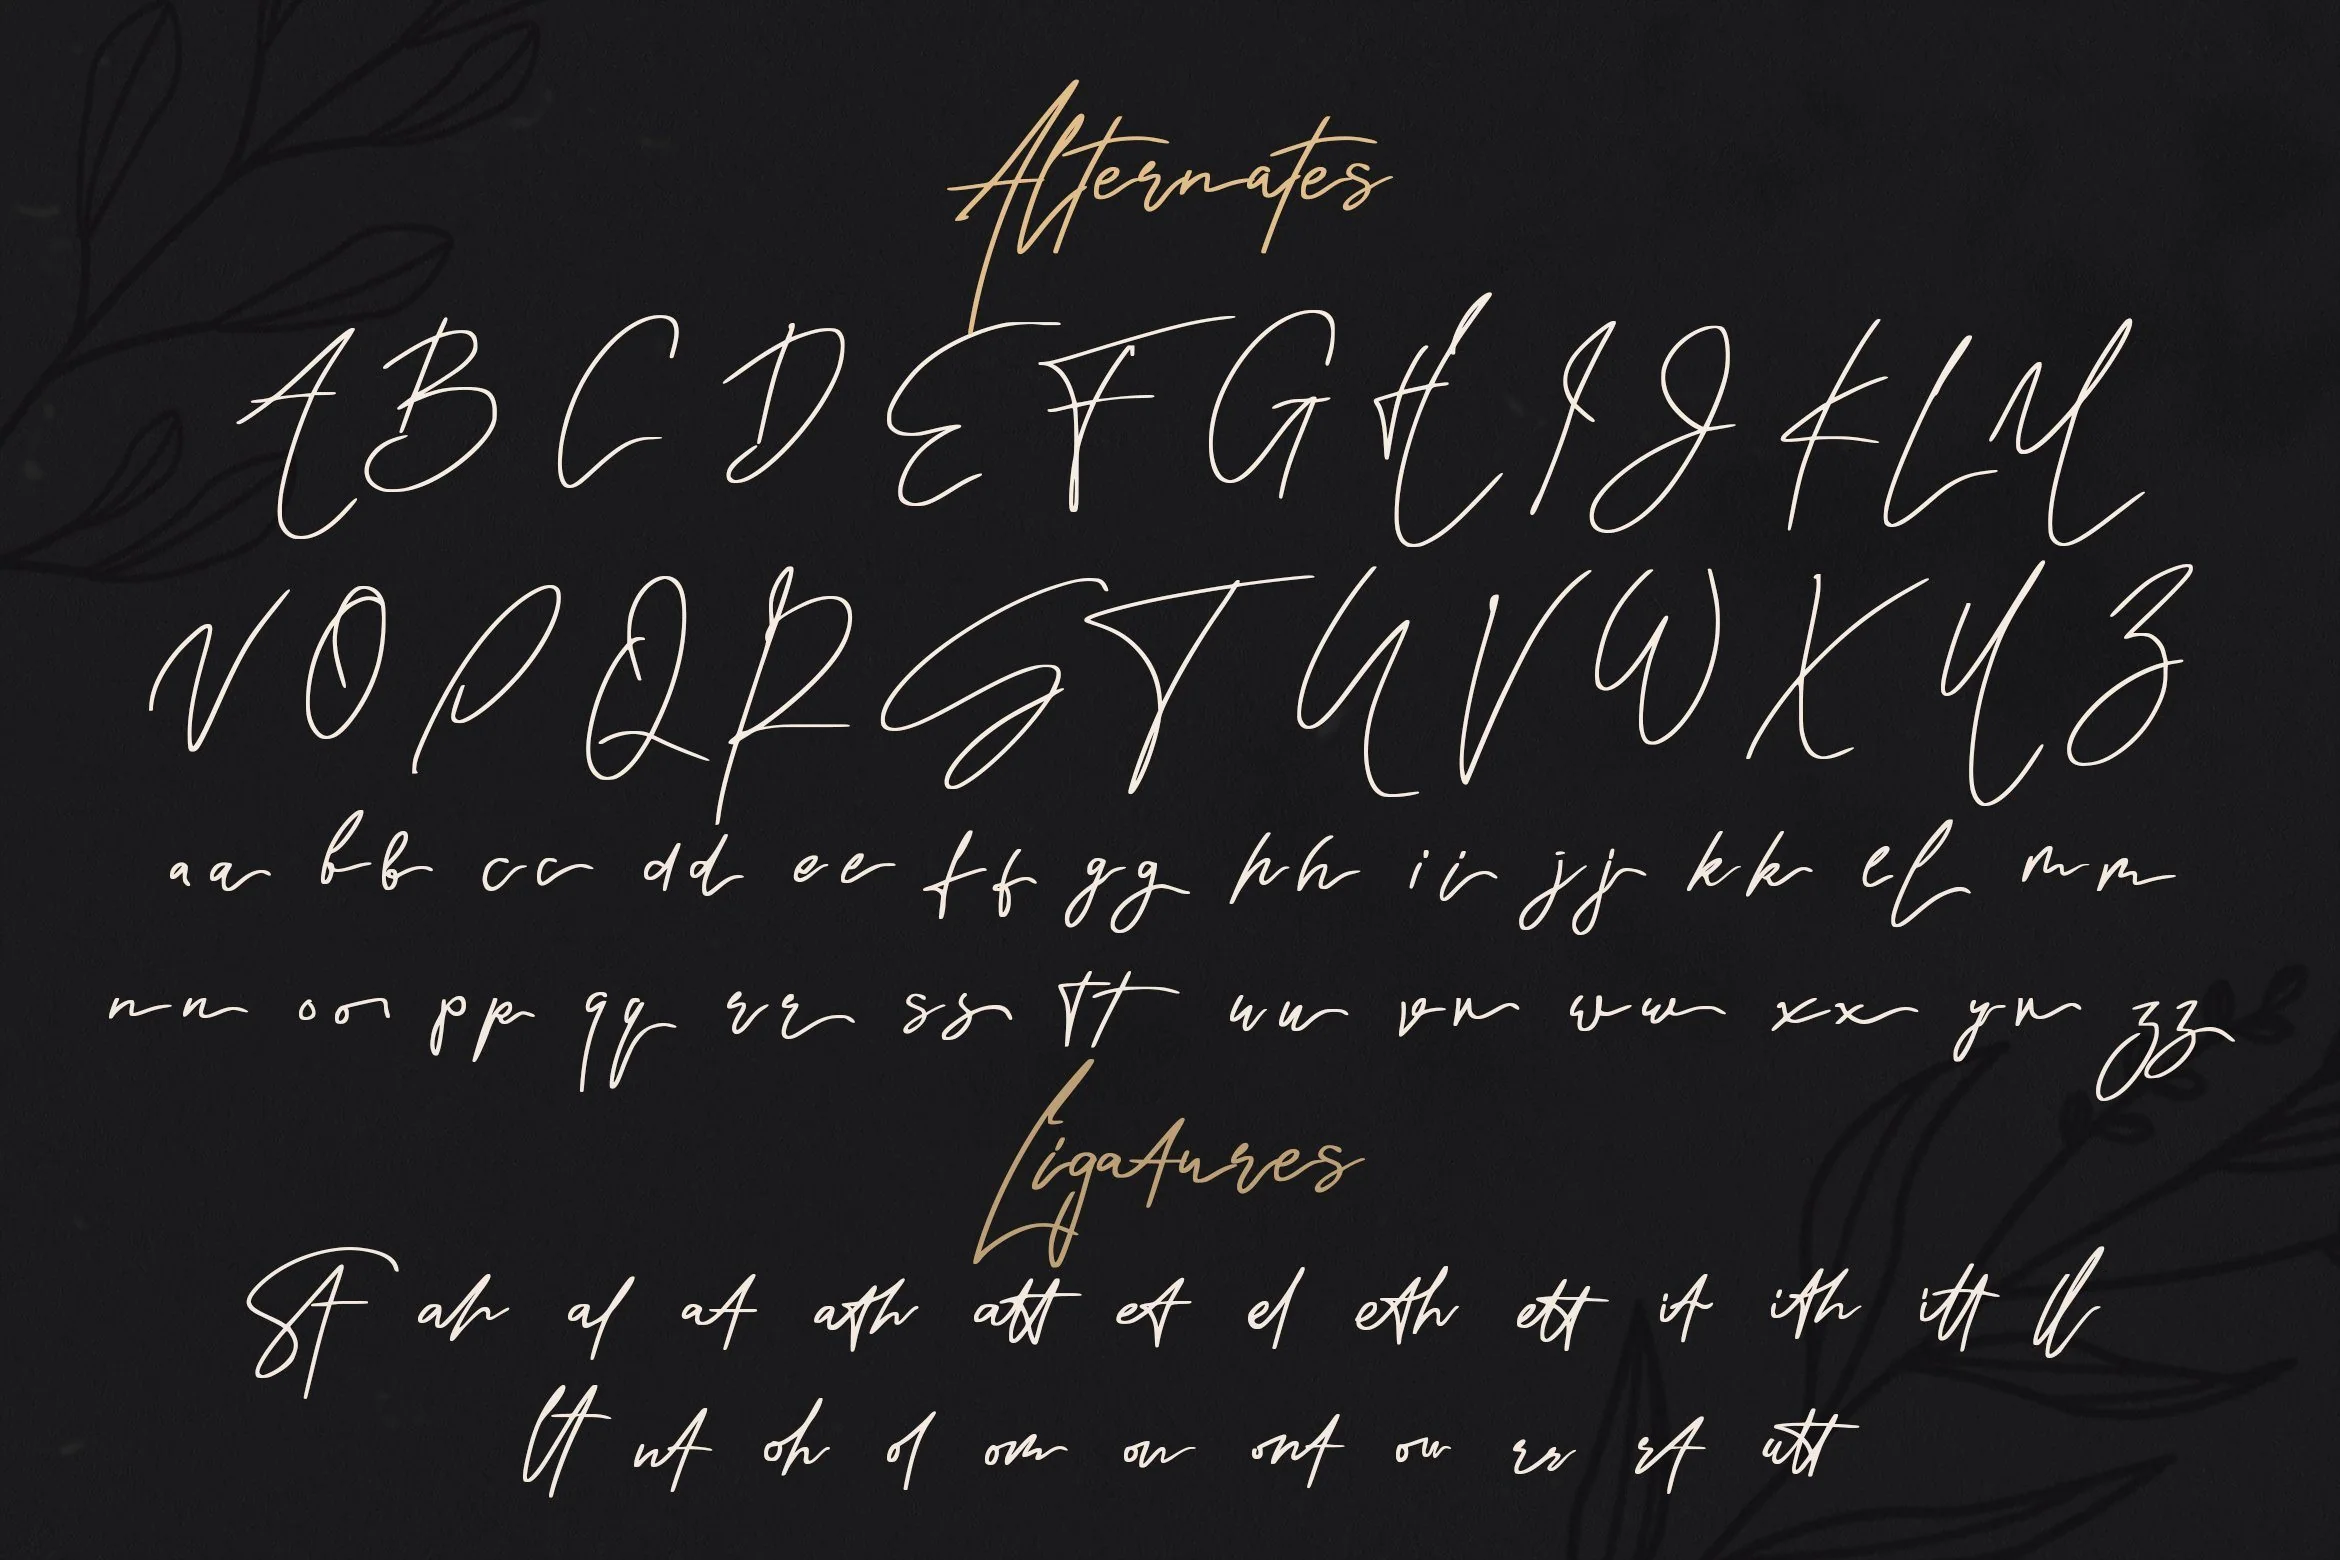 Alternates
A B C D E F G H I J K L M
N O P Q R S T U V W X Y Z
aa bb cc dd ee ff gg hh ii jj kk ll mm
nn oo pp qq rr ss tt uu vv ww xx yy zz
Ligatures
St ah al at ath att et el eth ett it ith itt ll
lt nt oh ol om on ont ou rr rt utt